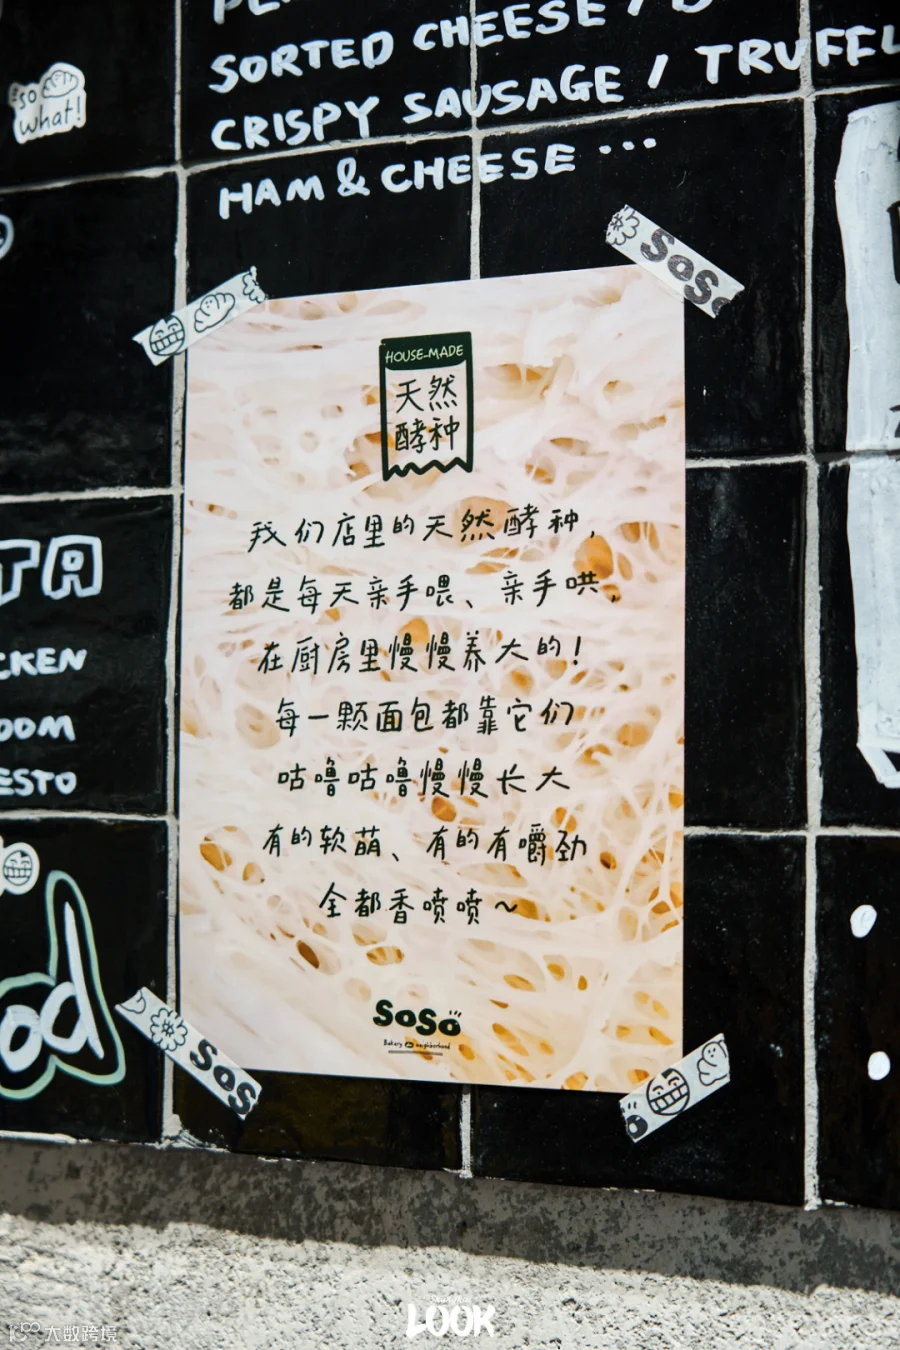 SORTED CHEESE /
CRISPY SAUSAGE / TRUFFL
HAM & CHEESE ...
so
what!
SoSo
HOUSE-MADE
天然
酵种
我们店里的天然酵种，
都是每天亲手喂、亲手哄，
在厨房里慢慢养大的！
每一颗面包都靠它们
咕噜咕噜慢慢长大
有的软萌、有的有嚼劲
全都香喷喷～
SoSo
Bakery neighborhood
TA
CKEN
OOM
ESTO
od
SoS
LOOK
大数跨境